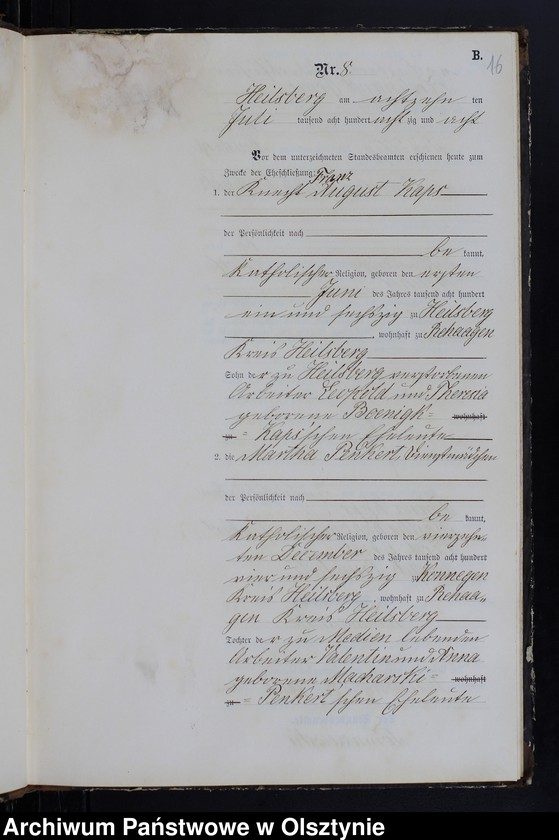 B.
16
Nr. 8.
Heilsberg am achtzehn ten
Juli tausend acht hundert acht zig und acht
Vor dem unterzeichneten Standesbeamten erschienen heute zum
Zwecke der Eheschließung: Franz
1. der Knecht August Kaps
der Persönlichkeit nach
be kannt,
Katholischer Religion, geboren den ersten
Juni des Jahres tausend acht hundert
ein und sechszig zu Heilsberg
, wohnhaft zu Rehaagen
Kreis Heilsberg
Sohn der zu Heilsberg verstorbenen
Arbeiter Leopold und Theresia
geborene Boenigk= wohnhaft
zu = Kaps'schen Eheleute
2. die Martha Penkert, Dienstmädchen
der Persönlichkeit nach
be kannt,
Katholischer Religion, geboren den vierzehn
ten December des Jahres tausend acht hundert
vier und sechszig zu Konnegen
Kreis Heilsberg, wohnhaft zu Rehaa„
gen Kreis Heilsberg
Tochter der zu Medien lebenden
Arbeiter Valentin und Anna
geborene Macharski= wohnhaft
zu = Penkert'schen Eheleute
Archiwum Państwowe w Olsztynie